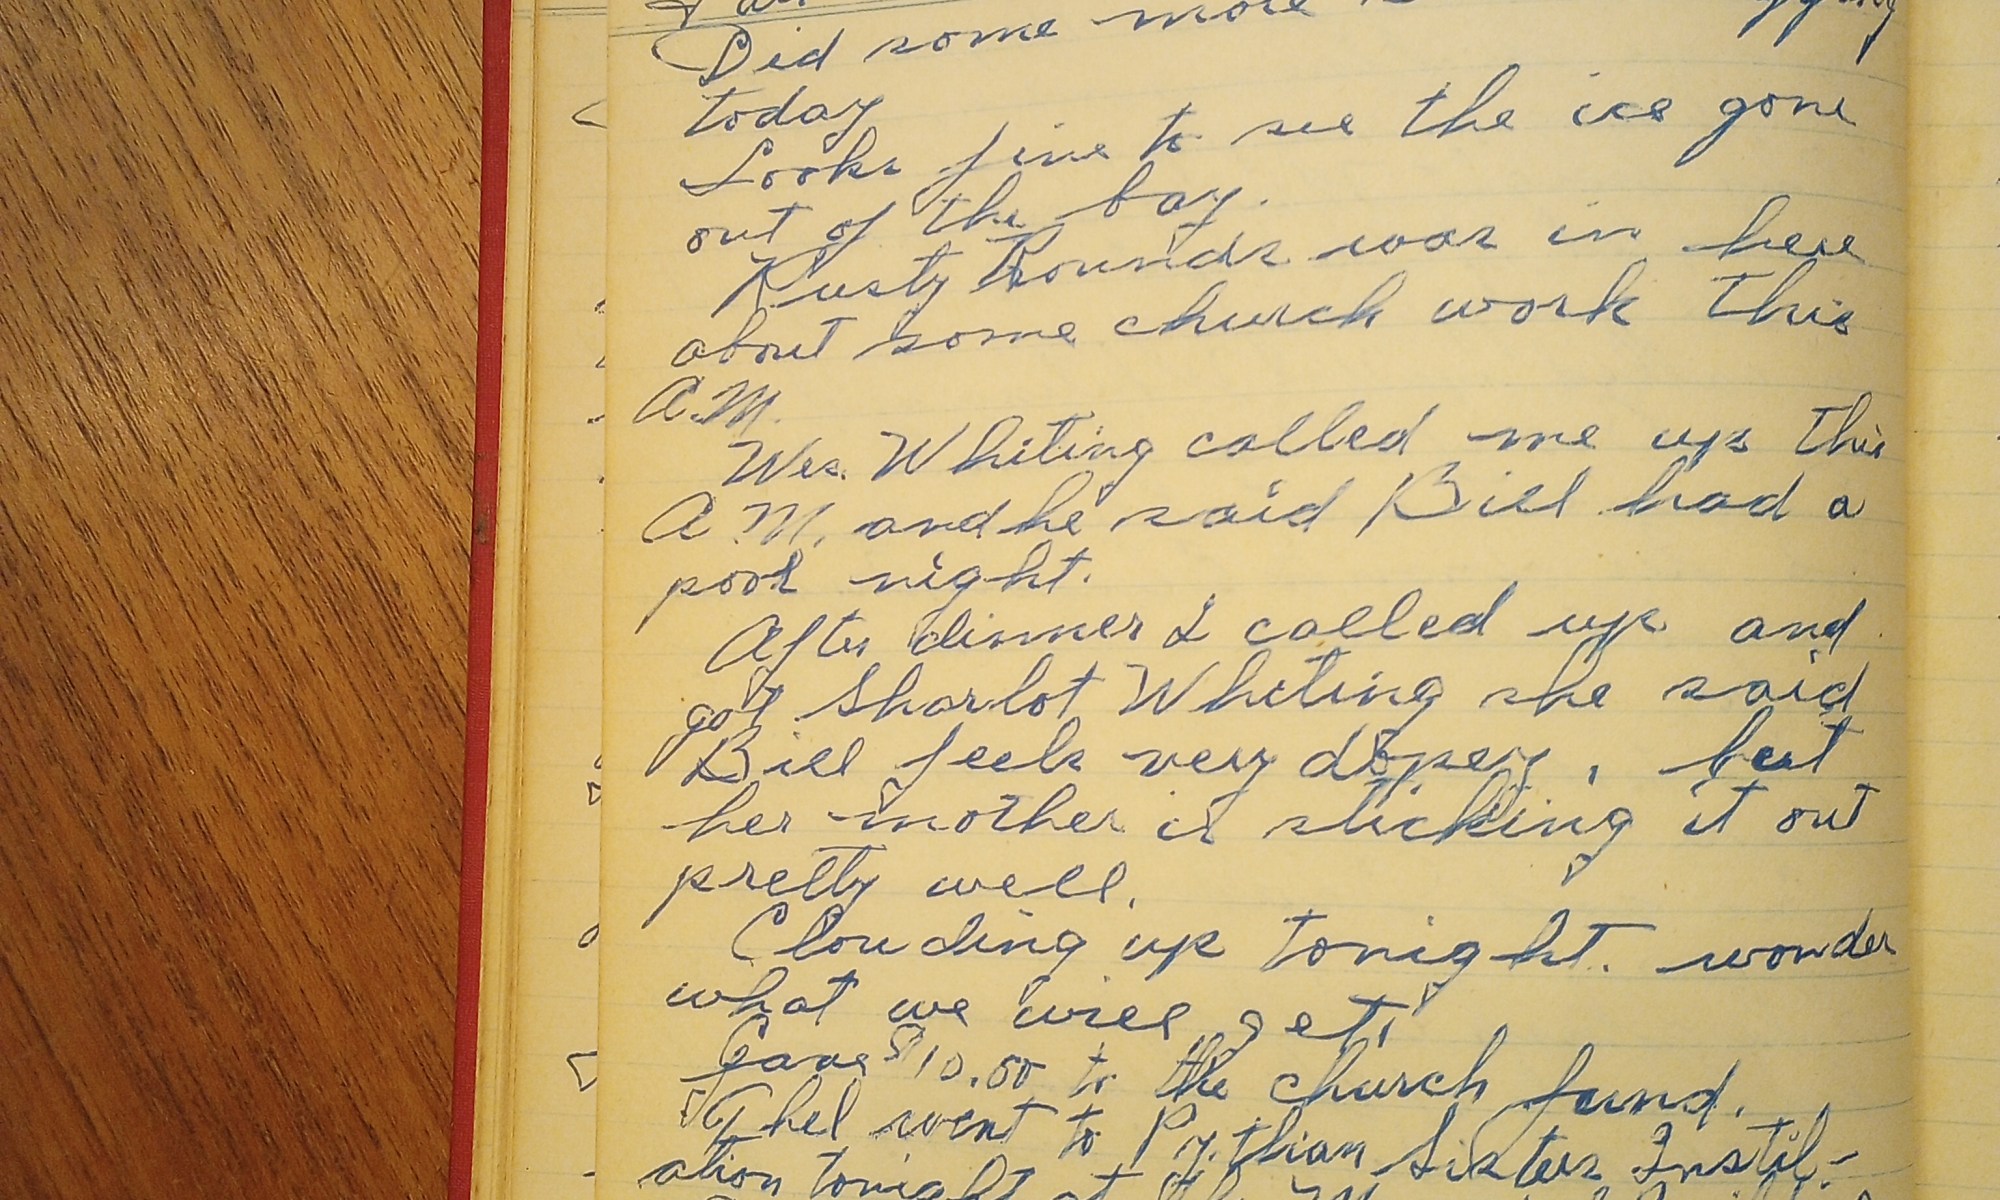 Did some more
today
Looks fine to see the ice gone
out of the bay.
Rusty Rounds was in here
about some church work this
A.M.
Wes. Whiting called me up this
A.M. and he said Bill had a
poor night.
After dinner I called up and
got Sharlot Whiting she said
Bill feels very dopey, but
her mother is sticking it out
pretty well.
Clouding up tonight. wonder
what we will get.
Gave $10.00 to the church fund.
Thel went to Pythian Sisters Instil-
ation tonight at the